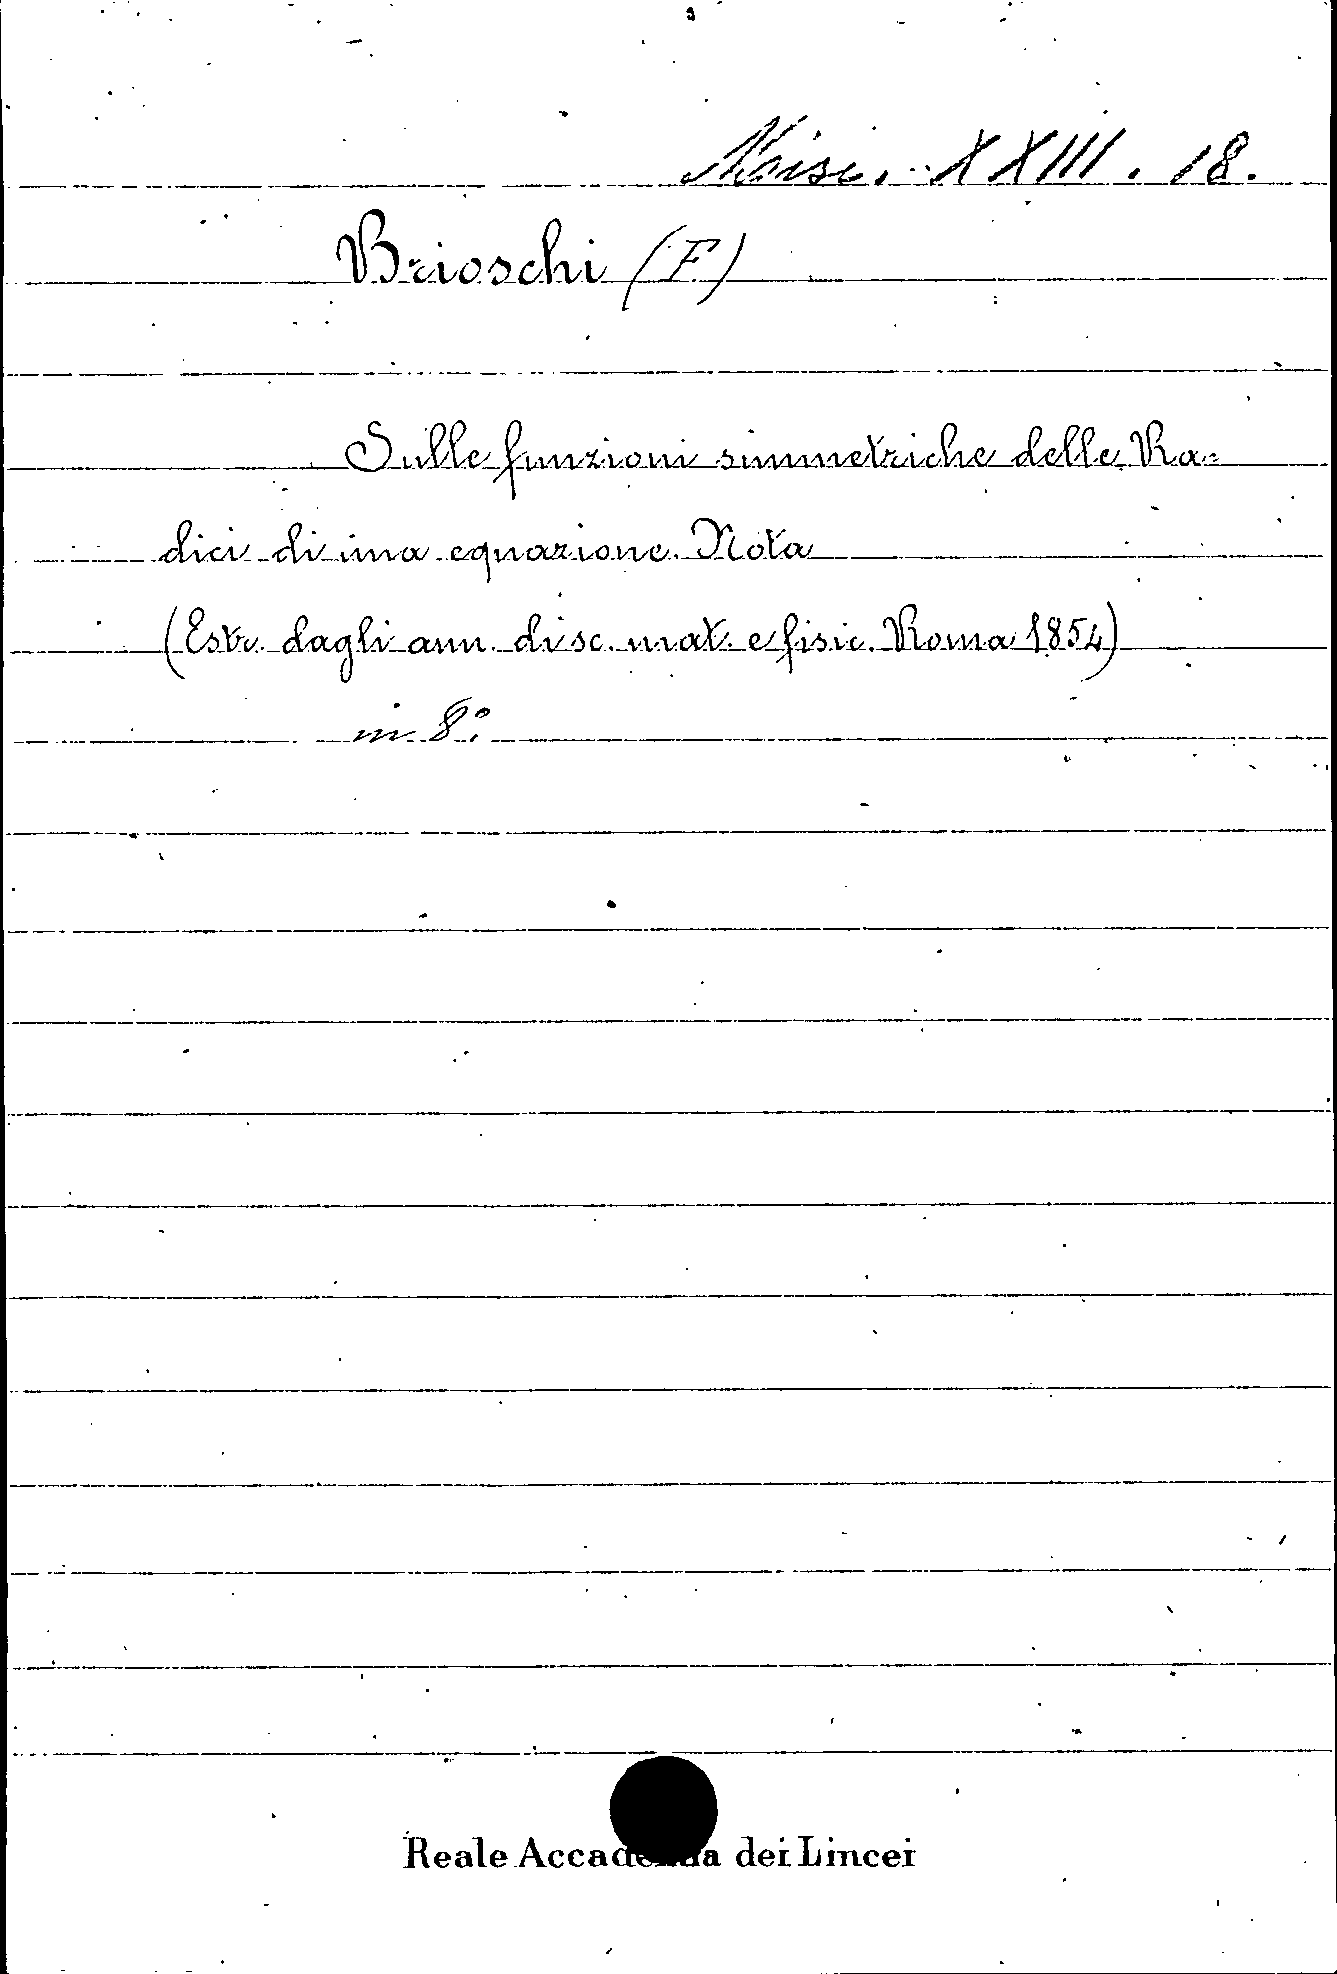 Misc. XXIII. 18.
Brioschi (F)
Sulle funzioni simmetriche delle Ra=
dici di una equazione. Nota
(Estr. dagli ann. di sc. mat. e fisic. Roma 1854)
in 8º
Reale Accademia dei Lincei